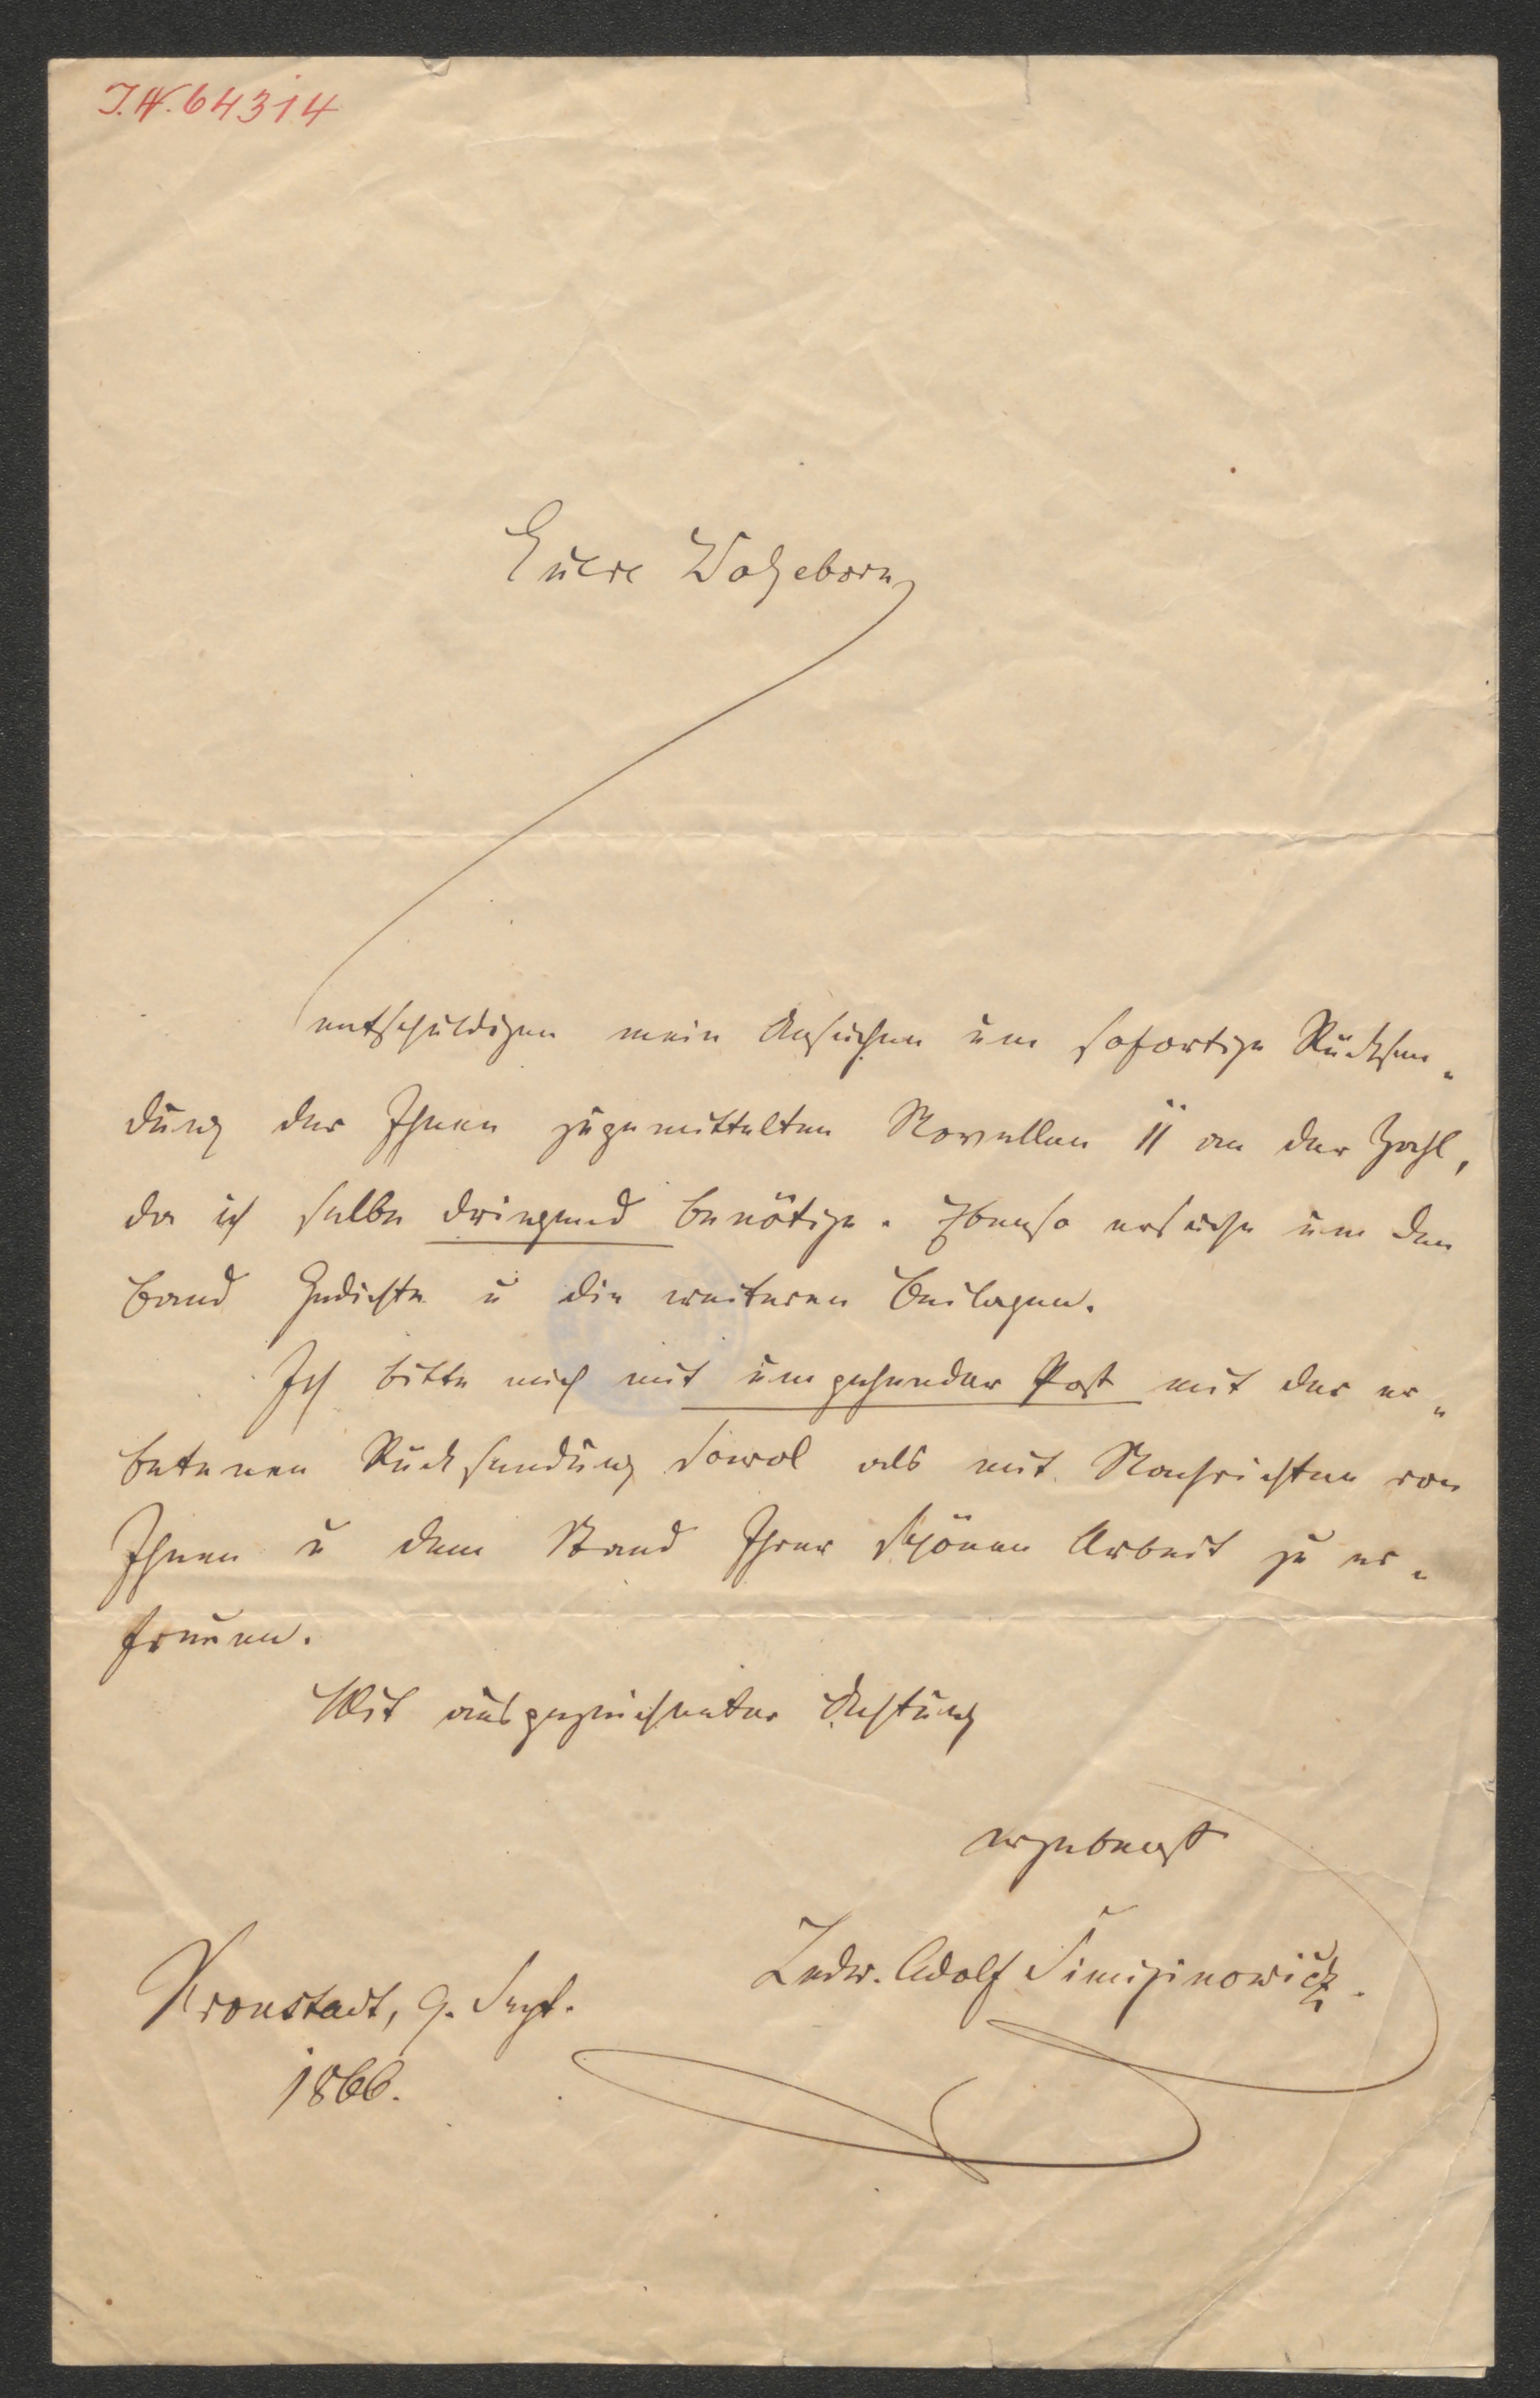 I.N. 64314
Euere Wolgeborn
entschuldigen mein Ansuchen um sofortige Rücksen„
dung der Ihnen zugemittelten Novellen 11 an der Zahl,
da ich selbe dringend benötige. Ebenso ersuche um den
Band Gedichte u die weiteren Beilagen.
Ich bitte mich mit umgehender Post mit der er„
betenen Rücksendung sowol als mit Nachrichten von
Ihnen u dem Stand Ihrer schönen Arbeit zu er„
freuen.
Mit ausgezeichneter Achtung
ergebenst
Ludw. Adolf Simiginowicz.
Kronstadt, 9. Sept.
1866.